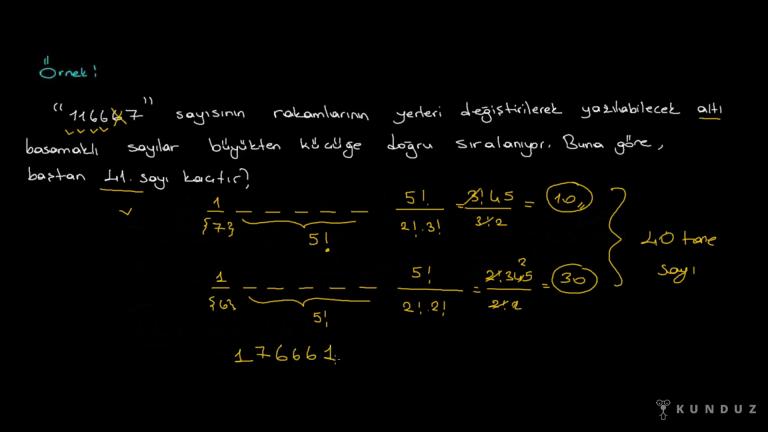 Örnek!
"116667" sayısının rakamlarının yerleri değiştirilerek yazılabilecek altı
basamaklı sayılar büyükten küçüğe doğru sıralanıyor. Buna göre,
baştan 41. sayı kaçtır?
1 _ _ _ _ _ 5! / 2!.3! = 3!.4.5 / 3!.2 = 10,
{7} 5!
40 tane sayı
1 _ _ _ _ _ 5! / 2!.2! = 2!.3.4.5 / 2!.2 = 30
{6} 5!
176661
KUNDUZ